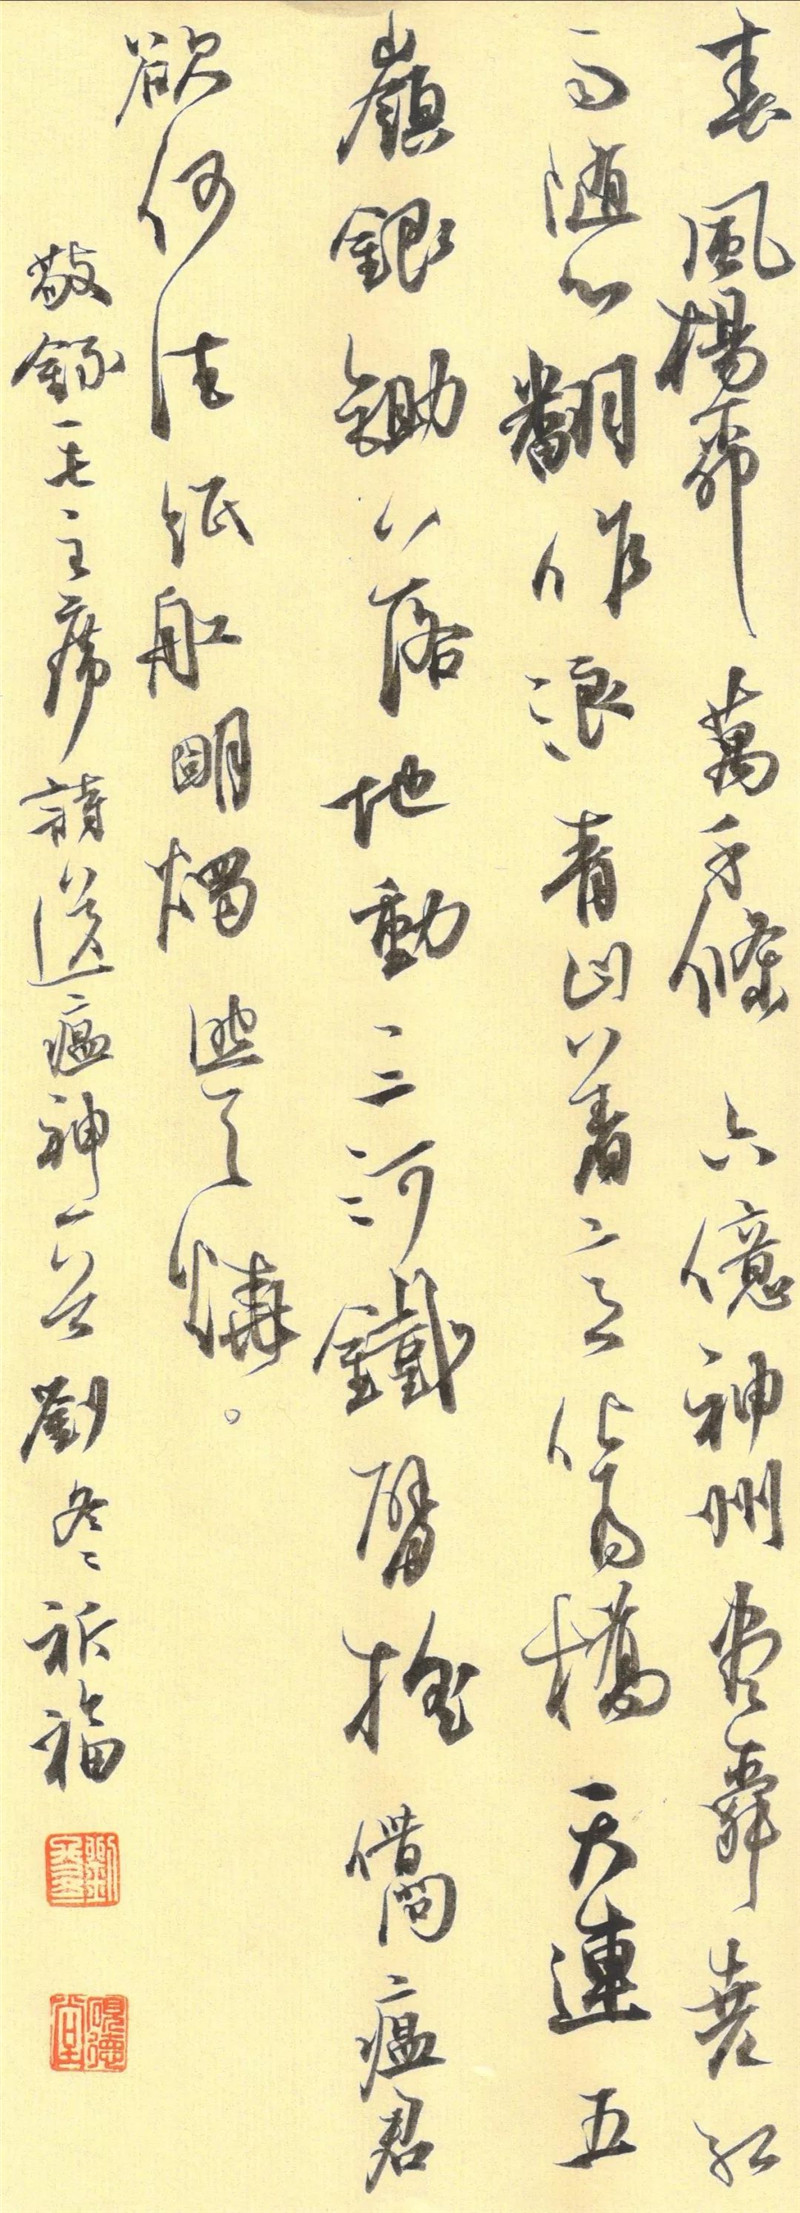 春風楊柳萬千條六億神州盡舜堯紅
雨隨心翻作浪青山着意化為橋天連五
嶺銀鋤落地動三河鐵臂搖借問瘟君
欲何往紙船明燭照天燒。
敬錄毛主席詩送瘟神一首劉冬冬祈福